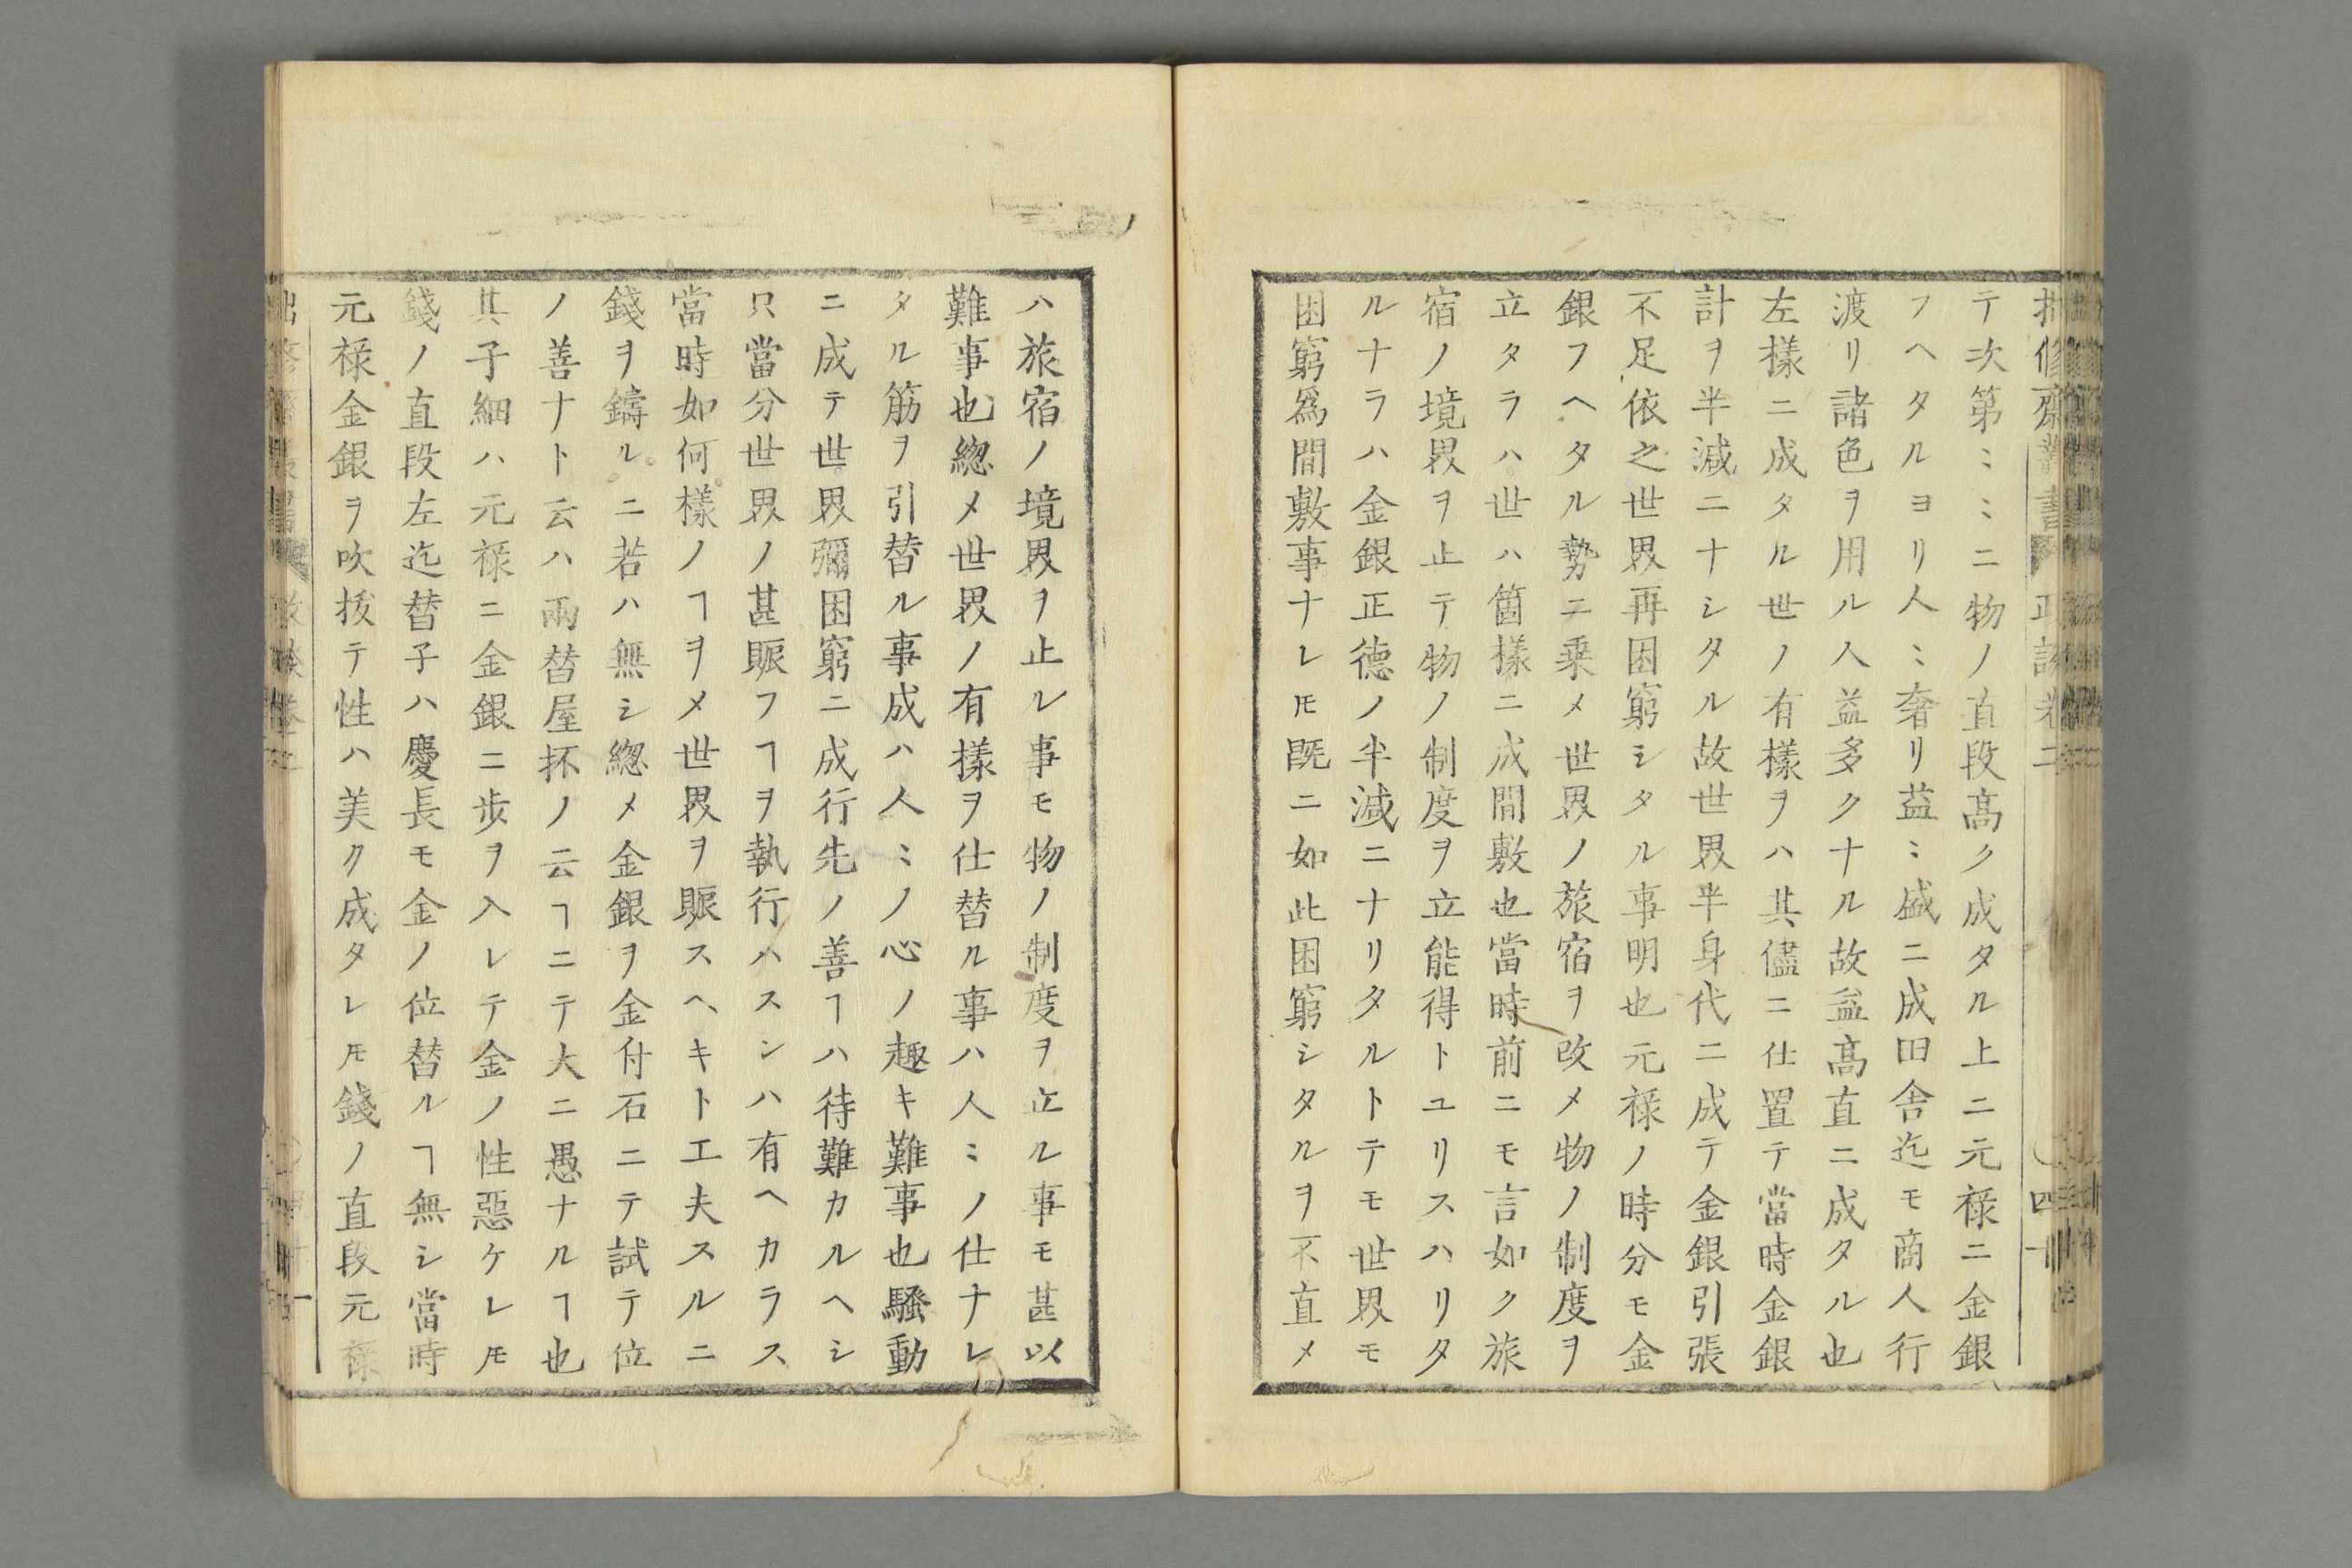 テ次第〻〻ニ物ノ直段高ク成タル上ニ元禄ニ金銀
フヘタルヨリ人〻奢リ益〻盛ニ成田舎迄モ商人行
渡リ諸色ヲ用ル人益多クナル故益高直ニ成タル也
左様ニ成タル世ノ有様ヲハ其儘ニ仕置テ當時金銀
計ヲ半減ニナシタル故世界半身代ニ成テ金銀引張
不足依之世界再困窮シタル事明也元禄ノ時分モ金
銀フヘタル勢ニ乗メ世界ノ旅宿ヲ改メ物ノ制度ヲ
立タラハ世ハ箇様ニ成間敷也當時前ニモ言如ク旅
宿ノ境界ヲ止テ物ノ制度ヲ立能得トユリスハリタ
ルナラハ金銀正徳ノ半減ニナリタルトテモ世界モ
困窮爲間敷事ナレ𪜈既ニ如此困窮シタルヲ不直メ
ハ旅宿ノ境界ヲ止ル事モ物ノ制度ヲ立ル事モ甚以
難事也總メ世界ノ有様ヲ仕替ル事ハ人〻ノ仕ナレ
タル筋ヲ引替ル事成ハ人〻ノ心ノ趣キ難事也騒動
ニ成テ世界彌困窮ニ成行先ノ善ヿハ待難カルヘシ
只當分世界ノ甚賑フヿヲ執行ハスンハ有ヘカラス
當時如何様ノヿヲメ世界ヲ賑スヘキト工夫スルニ
錢ヲ鑄ルニ若ハ無シ總メ金銀ヲ金付石ニテ試テ位
ノ善ナト云ハ兩替屋抔ノ云ヿニテ大ニ愚ナルヿ也
其子細ハ元禄ニ金銀ニ歩ヲ入レテ金ノ性惡ケレ𪜈
錢ノ直段左迄替子ハ慶長モ金ノ位替ルヿ無シ當時
元禄金銀ヲ吹抜テ性ハ美ク成タレ𪜈錢ノ直段元禄